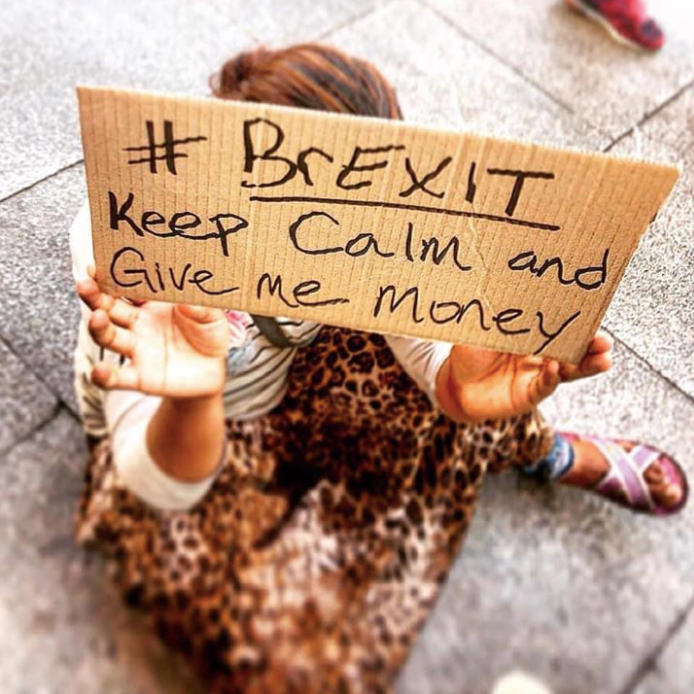 # BrEXIT
Keep Calm and
Give me money